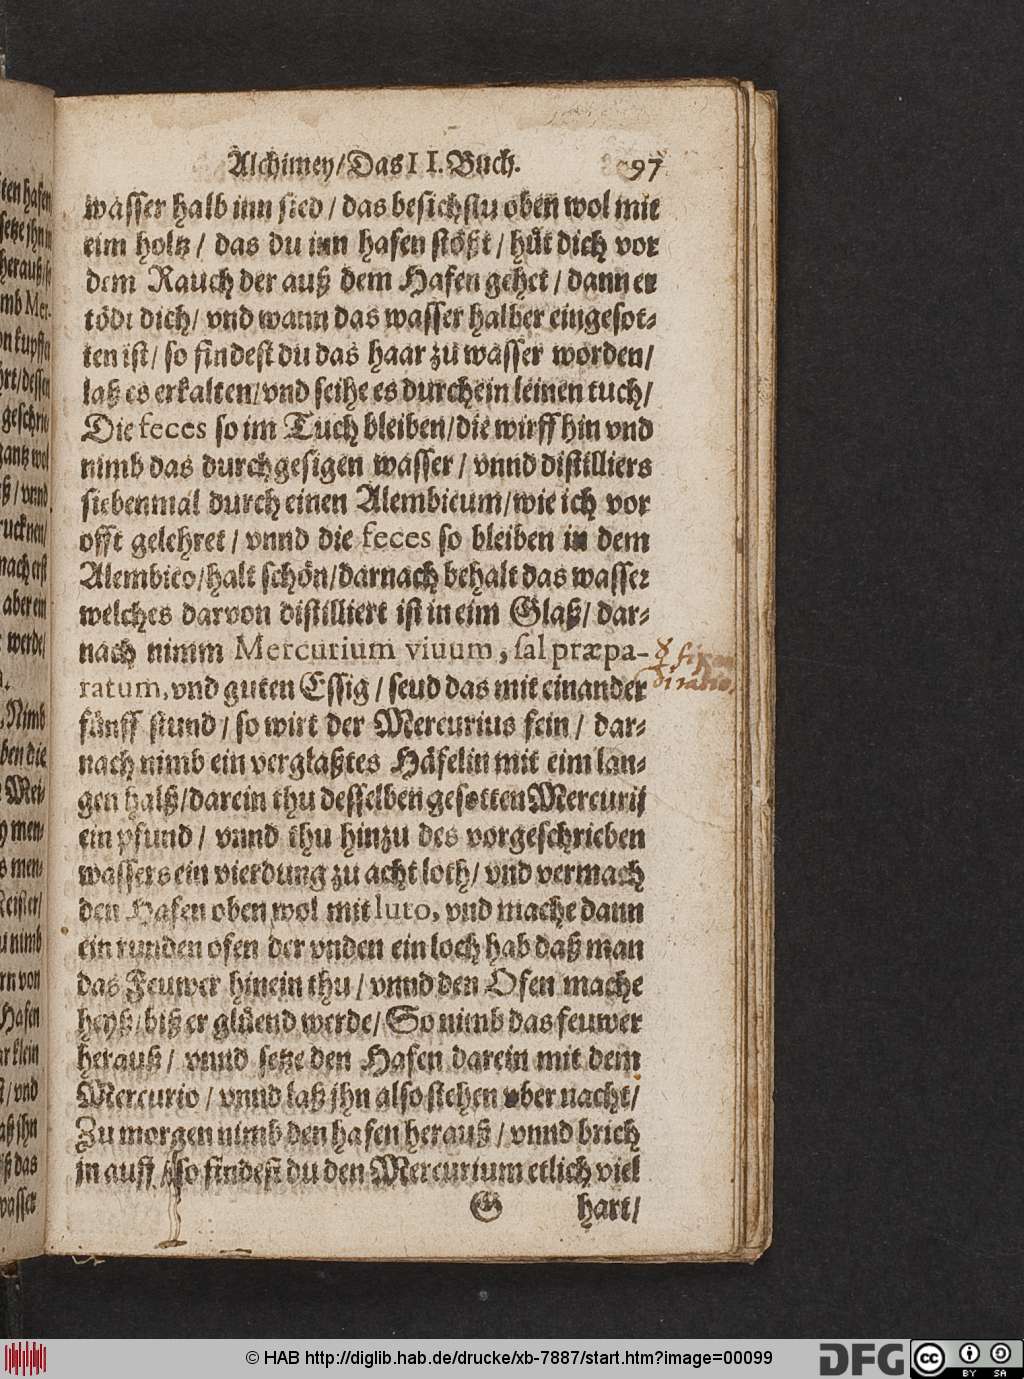 Alchimey/Das II. Buch. 97
wasser halb inn sied / das besichstu oben wol mit
eim holtz / das du inn hafen stößt / hüt dich vor
dem Rauch der auß dem Hafen gehet / dann er
tödt dich / vnd wann das wasser halber eingesot-
ten ist / so findest du das haar zu wasser worden /
laß es erkalten / vnd seihe es durch ein leinen tuch /
Die feces so im Tuch bleiben / die wirff hin vnd
nimb das durchgesigen wasser / vnnd distilliers
siebenmal durch einen Alembicum / wie ich vor
offt gelehret / vnnd die feces so bleiben in dem
Alembico / halt schön / darnach behalt das wasser
welches darvon distilliert ist in eim Glaß / dar-
nach nimm Mercurium viuum, sal præpa-
ratum, vnd guten Essig / seud das mit einander
fünff stund / so wirt der Mercurius fein / dar-
nach nimb ein verglaßtes Häfelin mit eim lan-
gen halß / darein thu desselben gesotten Mercurij
ein pfund / vnnd thu hinzu des vorgeschrieben
wassers ein vierdung zu acht loth / vnd vermach
den Hafen oben wol mit luto, vnd mache dann
ein runden ofen der vnden ein loch hab daß man
das Feuwer hinein thu / vnnd den Ofen mache
heyß / biß er glüend werde / So nimb das feuwer
herauß / vnnd setze den Hafen darein mit dem
Mercurio / vnnd laß jhn also stehen vber nacht /
Zu morgen nimb den hafen herauß / vnnd brich
jn auff / so findest du den Mercurium etlich viel
G hart /
ten hafen
setze jhn in
herauß / so
mb Mer-
on kupffer
hrt / dessen
geschrie
gantz wol
ß / vnnd
rucknen /
nach erst
aber ein
werde /
Nimb
ben die
Mei-
men-
s men-
Meister /
u nimb
rn von
Hafen
ar klein
t / vnd
aß jhn
ß das
wasser
© HAB http://diglib.hab.de/drucke/xb-7887/start.htm?image=00099
DFG
cc
BY SA